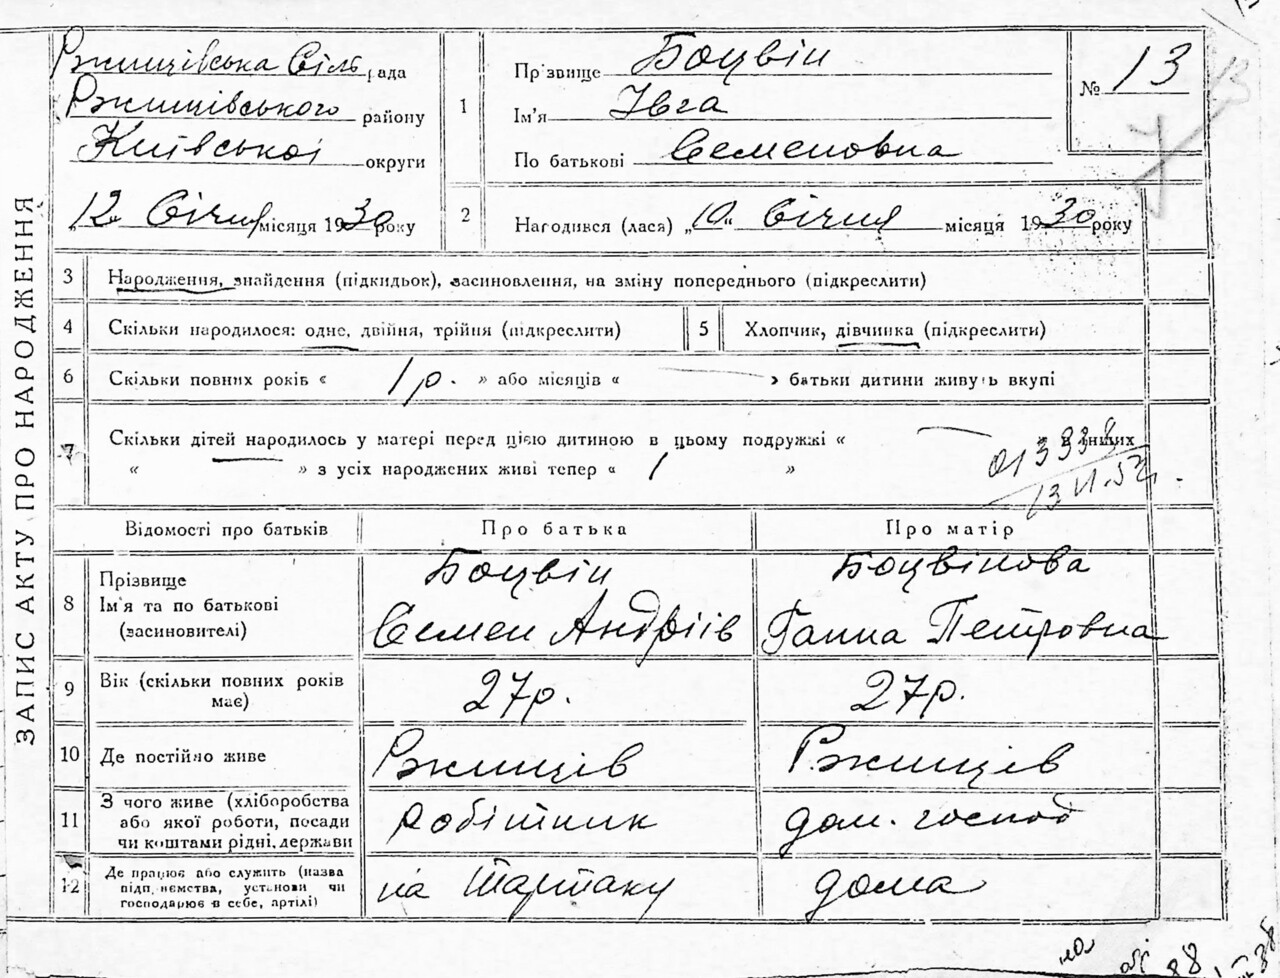 ЗАПИС АКТУ ПРО НАРОДЖЕННЯ
Ржищівська Сіль рада
Ржищівського району
Київської округи
"12" Січня місяця 1930 року
1
Прізвище Боцвін
Ім'я Івга
По батькові Семеновна
№ 13
13
2
Народився (лася) „10" Січня місяця 1930 року
3 Народження, знайдення (підкидьок), засиновлення, на зміну попереднього (підкреслити)
4 Скільки народилося: одне, двійня, трійня (підкреслити)
5 Хлопчик, дівчинка (підкреслити)
6 Скільки повних років « 1 р. » або місяців « — » батьки дитини живуть вкупі
7 Скільки дітей народилось у матері перед цією дитиною в цьому подружжі « — » в інших
« — » з усіх народжених живі тепер « 1 »
13 VI. 52.
Відомості про батьків Про батька Про матір
8 Прізвище Боцвін Боцвінова
Ім'я та по батькові Семен Андріїв Ганна Петровна
(засиновителі)
9 Вік (скільки повних років має) 27р. 27р.
10 Де постійно живе Ржищів Ржищів
11 З чого живе (хліборобства
або якої роботи, посади робітник дом. господ
чи коштами рідні, держави
12 Де працює або служить (назва
підприємства, установи чи на Тартаку дома
господарює в себе, артілі)
88